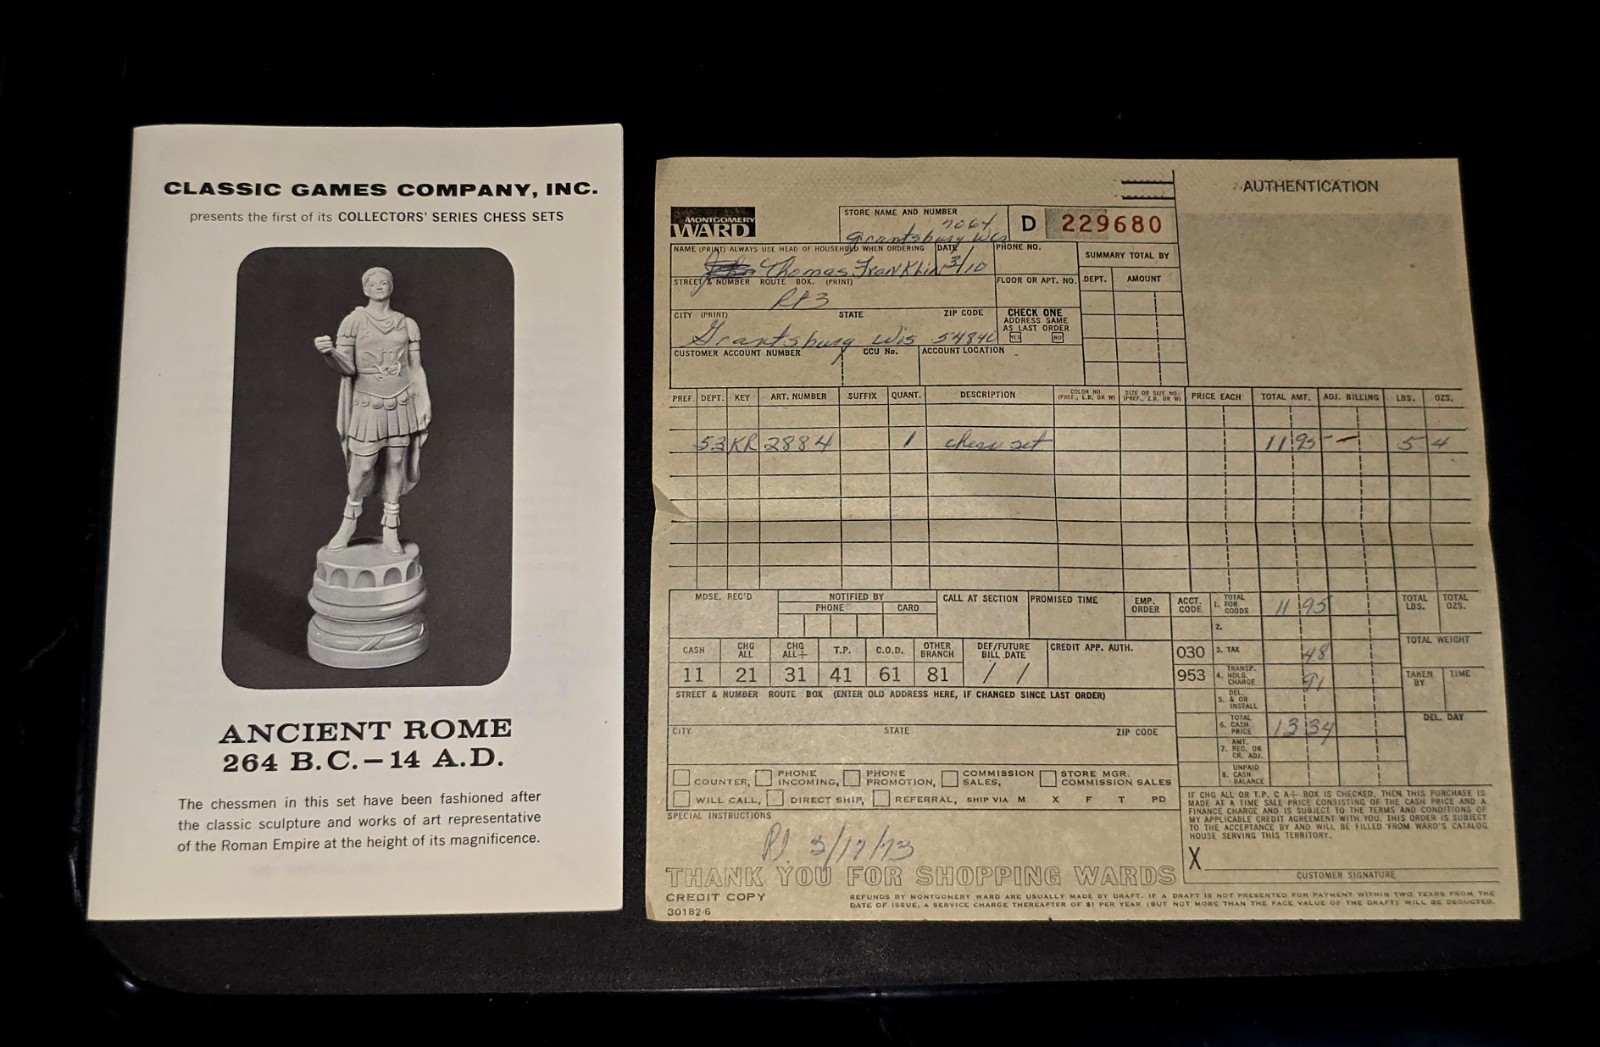 CLASSIC GAMES COMPANY, INC.
presents the first of its COLLECTORS' SERIES CHESS SETS
ANCIENT ROME
264 B.C.–14 A.D.
The chessmen in this set have been fashioned after
the classic sculpture and works of art representative
of the Roman Empire at the height of its magnificence.
AUTHENTICATION
MONTGOMERY
WARD
STORE NAME AND NUMBER
7064
Grantsburg Wis
D 229680
NAME (PRINT) ALWAYS USE HEAD OF HOUSEHOLD WHEN ORDERING DATE PHONE NO.
Thomas Franklin 3/10
SUMMARY TOTAL BY
DEPT. AMOUNT
STREET & NUMBER ROUTE BOX. (PRINT) FLOOR OR APT. NO.
Rt 3
CITY (PRINT) STATE ZIP CODE
Grantsburg Wis 54840
CHECK ONE
ADDRESS SAME
AS LAST ORDER
YES NO
CUSTOMER ACCOUNT NUMBER CCU No. ACCOUNT LOCATION
PREF. DEPT. KEY ART. NUMBER SUFFIX QUANT. DESCRIPTION COLOR NO. (PREF., L.B. OR W) SIZE OR SIZE NO. (PREF., L.B. OR W) PRICE EACH TOTAL AMT. ADJ. BILLING LBS. OZS.
53 KR 2884 1 chess set 11 95 – 5 4
MDSE. REC'D NOTIFIED BY CALL AT SECTION PROMISED TIME EMP. ORDER ACCT. CODE
PHONE CARD
1. TOTAL FOR GOODS 11 95
TOTAL LBS. TOTAL OZS.
2.
TOTAL WEIGHT
CASH CHG ALL CHG ALL+ T.P. C.O.D. OTHER BRANCH DEF/FUTURE BILL DATE CREDIT APP. AUTH.
11 21 31 41 61 81 / /
030 3. TAX 48
953 4. TRANSP. HDLG. CHARGE 91
TAKEN BY TIME
5. DEL. & OR INSTALL
STREET & NUMBER ROUTE BOX (ENTER OLD ADDRESS HERE, IF CHANGED SINCE LAST ORDER)
6. TOTAL CASH PRICE 13 34
DEL. DAY
CITY STATE ZIP CODE
7. AMT. REC. OR CR. ADJ.
8. UNPAID CASH BALANCE
COUNTER, PHONE INCOMING, PHONE PROMOTION, COMMISSION SALES, STORE MGR. COMMISSION SALES
WILL CALL, DIRECT SHIP, REFERRAL, SHIP VIA M X F T PD
IF CHG ALL OR T.P. C A+ BOX IS CHECKED, THEN THIS PURCHASE IS
MADE AT A TIME SALE PRICE CONSISTING OF THE CASH PRICE AND A
FINANCE CHARGE AND IS SUBJECT TO THE TERMS AND CONDITIONS OF
MY APPLICABLE CREDIT AGREEMENT WITH YOU. THIS ORDER IS SUBJECT
TO THE ACCEPTANCE BY AND WILL BE FILLED FROM WARD'S CATALOG
HOUSE SERVING THIS TERRITORY.
SPECIAL INSTRUCTIONS
Pd. 3/17/73
X
CUSTOMER SIGNATURE
THANK YOU FOR SHOPPING WARDS
CREDIT COPY
30182-6
REFUNDS BY MONTGOMERY WARD ARE USUALLY MADE BY DRAFT. IF A DRAFT IS NOT PRESENTED FOR PAYMENT WITHIN TWO YEARS FROM THE
DATE OF ISSUE, A SERVICE CHARGE THEREAFTER OF $1 PER YEAR (BUT NOT MORE THAN THE FACE VALUE OF THE DRAFT) WILL BE DEDUCTED.